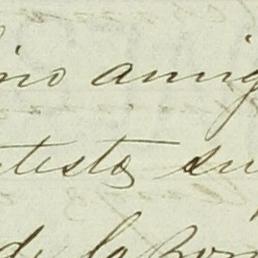 ino amig
testo su
de la Bon